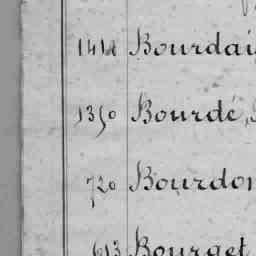 1414 Bourdai
1350 Bourdé,
720 Bourdon
613 Bourget